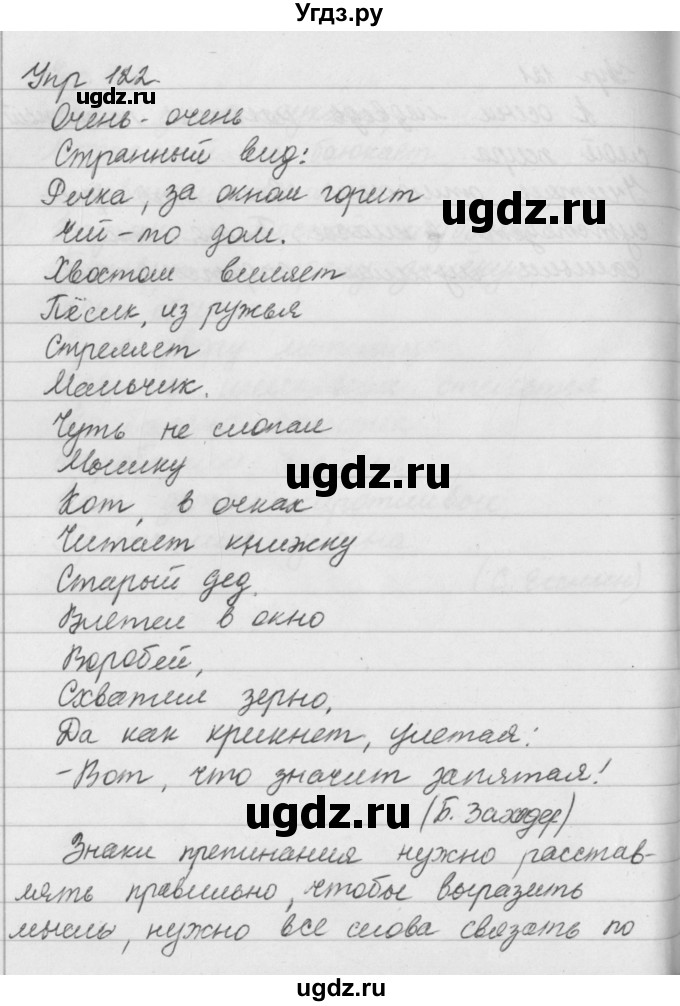 Угдз.ру
Упр 122.
ugdz.ru
Очень-очень
Странный вид:
Речка, за окном горит
ugdz.ru
Чей-то дом.
Хвостом виляет
Пёсик, из ружья
Стреляет
Мальчик.
Чуть не слопал
Мышку
ugdz.ru
Кот, в очках
Читает книжку
Старый дед.
Влетел в окно
Воробей,
Схватил зерно,
Да как крикнет, улетая:
-Вот, что значит запятая!
ugdz.ru
(Б. Заходер)
Знаки препинания нужно расстав-
лять правильно, чтобы выразить
мысль, нужно все слова связать по
ugdz.ru